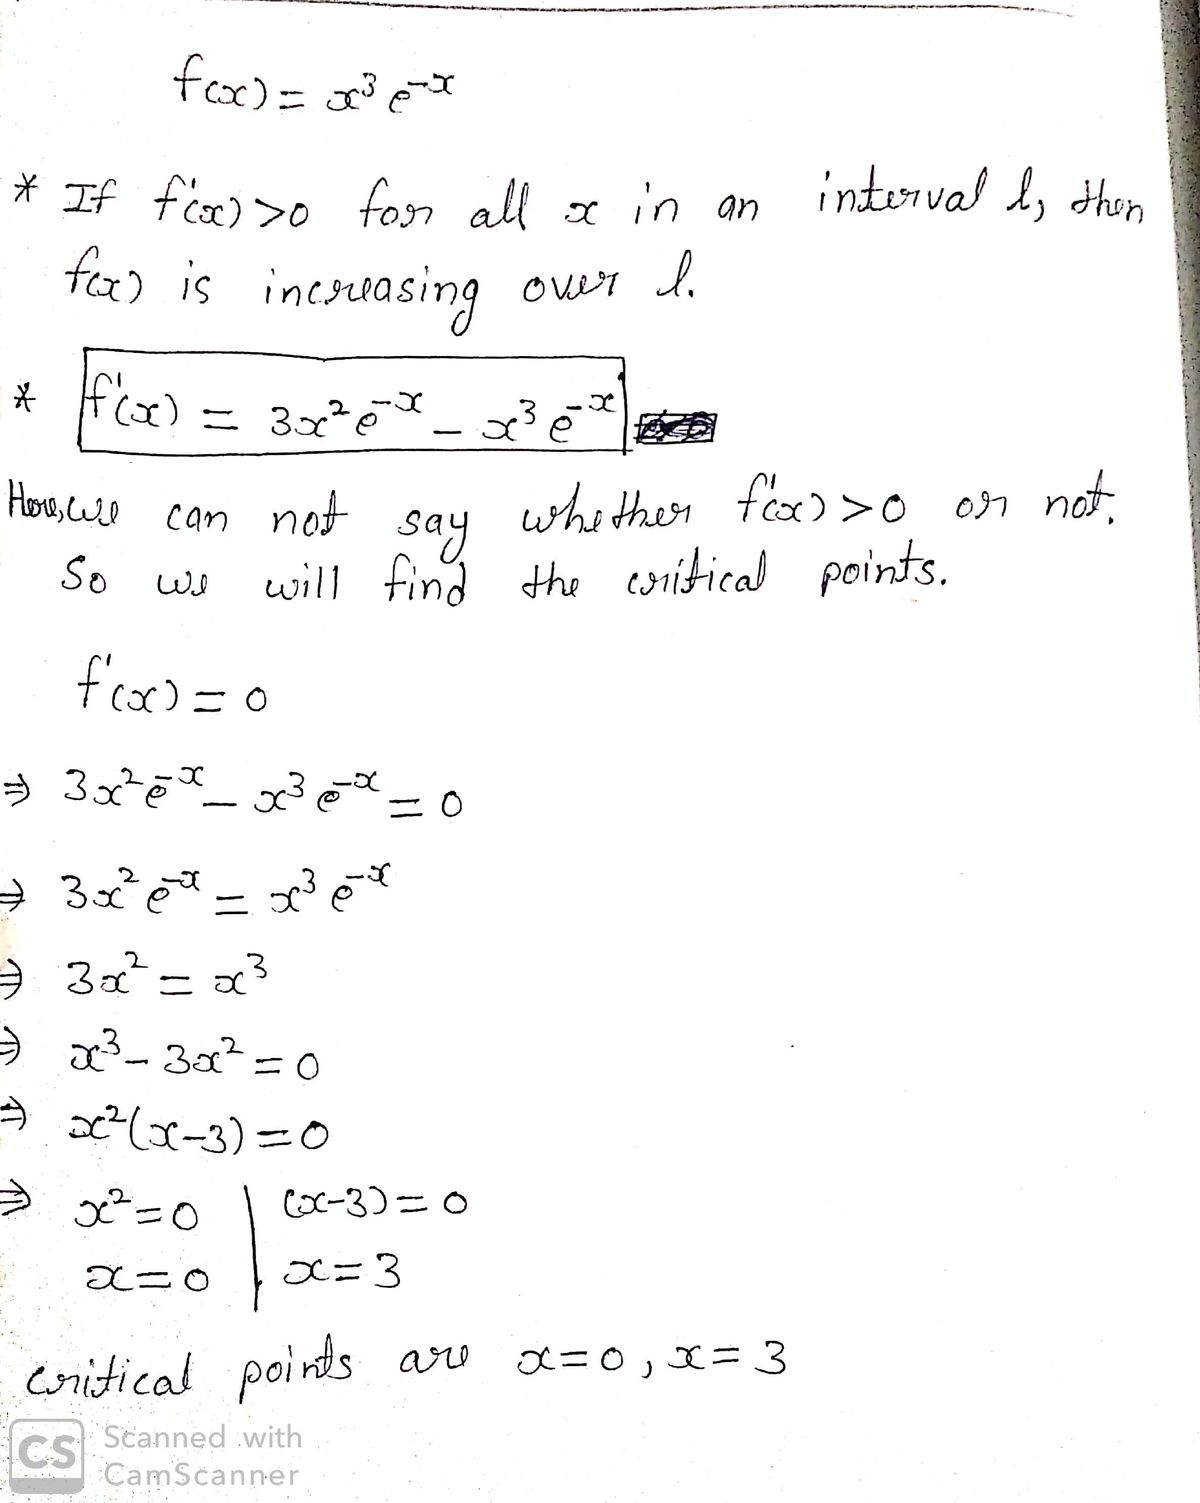 f(x) = x³ e⁻ˣ
* If f'(x) > 0 for all x in an interval l, then
f(x) is increasing over l.
* f'(x) = 3x² e⁻ˣ - x³ e⁻ˣ
Here, we can not say whether f'(x) > 0 or not.
So we will find the critical points.
f'(x) = 0
⇒ 3x² e⁻ˣ - x³ e⁻ˣ = 0
⇒ 3x² e⁻ˣ = x³ e⁻ˣ
⇒ 3x² = x³
⇒ x³ - 3x² = 0
⇒ x²(x-3) = 0
⇒ x² = 0 | (x-3) = 0
x = 0 | x = 3
critical points are x = 0, x = 3
CS Scanned with
CamScanner